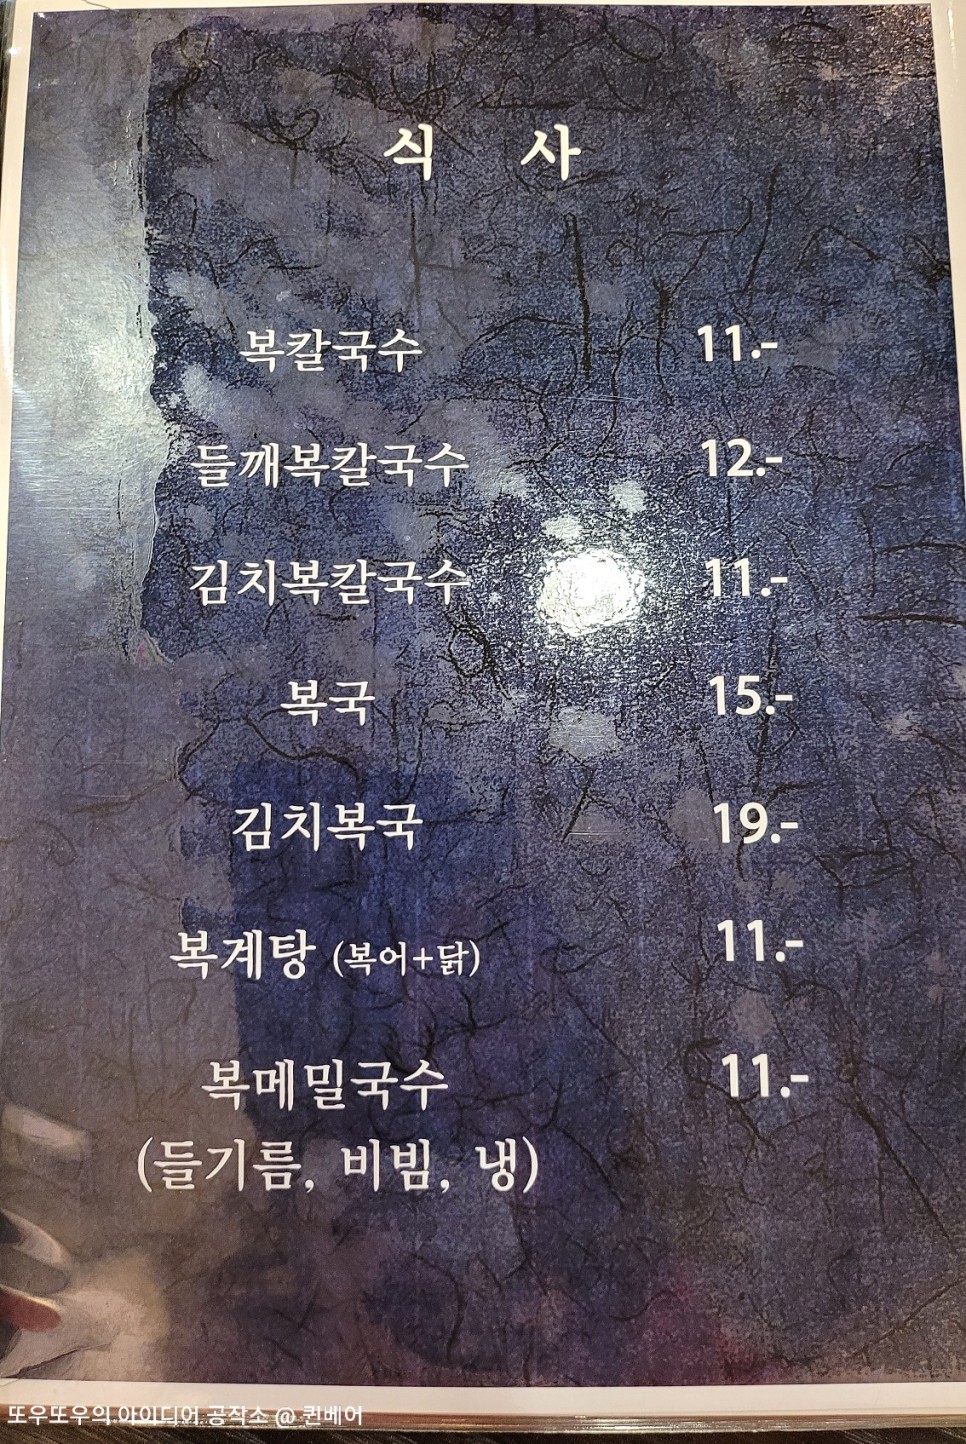 식 사
복칼국수 11.-
들깨복칼국수 12.-
김치복칼국수 11.-
복국 15.-
김치복국 19.-
복계탕 (복어+닭) 11.-
복메밀국수 11.-
(들기름, 비빔, 냉)
또우또우의 아이디어 공작소 @ 퀸베어